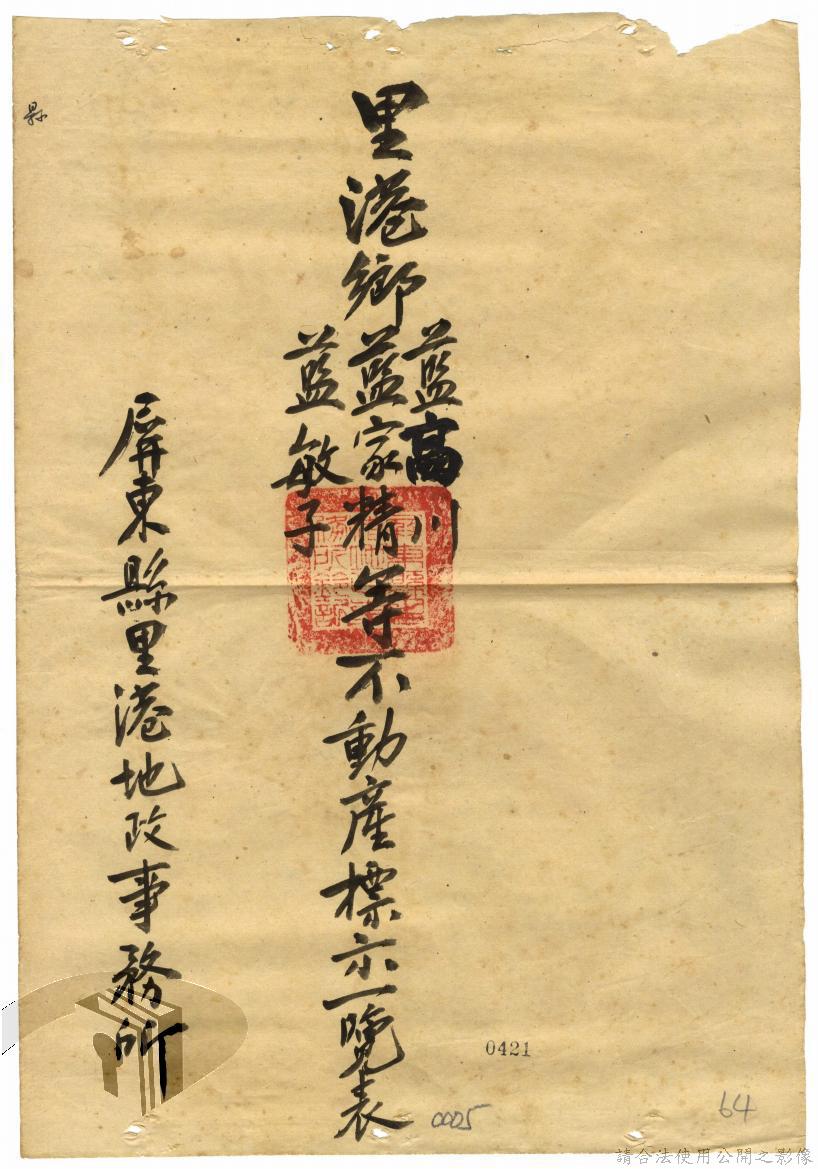 里港鄉
藍高川
藍家精等不動產標示一覽表
藍敏子
屏東縣里港地政事務所
縣
0421
0005
64
請合法使用公開之影像